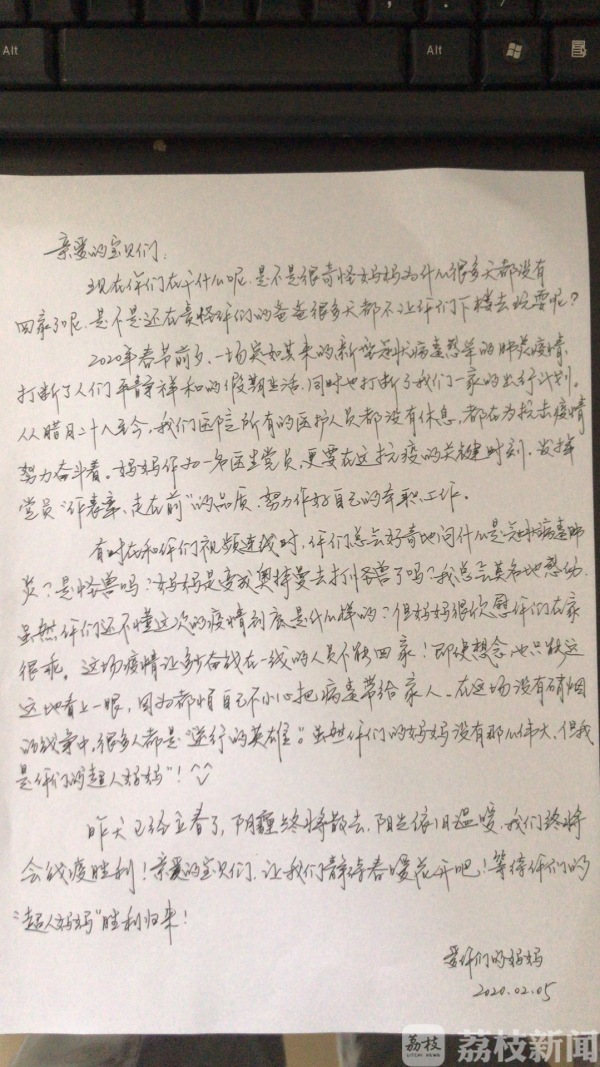 Alt
Alt
亲爱的宝贝们:
现在你们在干什么呢,是不是很奇怪妈妈为什么很多天都没有
回家了呢,是不是还在责怪你们的爸爸很多天都不让你们下楼去玩耍呢?
2020年春节前夕,一场突如其来的新型冠状病毒感染的肺炎疫情,
打断了人们平静祥和的假期生活,同时也打断了我们一家的出行计划。
从腊月二十八至今,我们医院所有的医护人员都没有休息,都在为抗击疫情
努力奋斗着。妈妈作为一名医生党员,更要在这抗疫的关键时刻,发挥
党员“作表率、走在前”的品质,努力作好自己的本职工作。
有时在和你们视频连线时,你们总会好奇地问什么是冠状病毒肺
炎?是怪兽吗?妈妈是变成奥特曼去打怪兽了吗?我总会莫名地感动,
虽然你们还不懂这次的疫情到底是什么样的?但妈妈很欣慰你们在家
很乖。这场疫情让多少奋战在一线的人员不能回家!即使想念也只能远
远地看上一眼,因为都怕自己不小心把病毒带给家人。在这场没有硝烟
的战争中,很多人都是“逆行的英雄”。虽然你们的妈妈没有那么伟大,但我
是你们的“超人妈妈”!^^
昨天已经立春了,阴霾终将散去,阳光依旧温暖,我们终将
会战疫胜利!亲爱的宝贝们,让我们静待春暖花开吧!等待你们的
“超人妈妈”胜利归来!
爱你们的妈妈
2020.02.05
荔枝
LITCHI NEWS
荔枝新闻